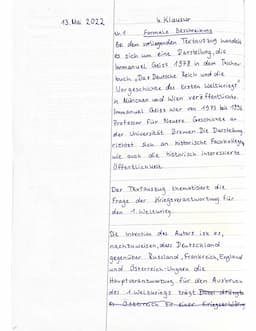 13. Mai 2022
4. Klausur
Nr. 1 Formale Beschreibung
Bei dem vorliegenden Textauszug handelt
es sich um eine Darstellung, die
Immanuel Geiss 1978 in dem Taschen-
buch „Das Deutsche Reich und die
Vorgeschichte des ersten Weltkriegs"
in München und Wien veröffentlichte.
Immanuel Geiss war an 1973 bis 1996
Professor für Neuere Geschichte an
der Universität Bremen. Die Darstellung
richtet sich an historische Fachkollegen
wie auch die historisch interessierte
Öffentlichkeit.
Der Textauszug thematisiert die
Frage der Kriegsverantwortung für
den 1. Weltkrieg.
Die Intention des Autors ist es,
nachzuweisen, dass Deutschland
gegenüber Russland, Frankreich, England
und Österreich-Ungarn die
Hauptverantwortung für den Ausbruch
des 1. Weltkriegs trägt. Dabei drängte
es Österreich zu einer Kriegserklärung